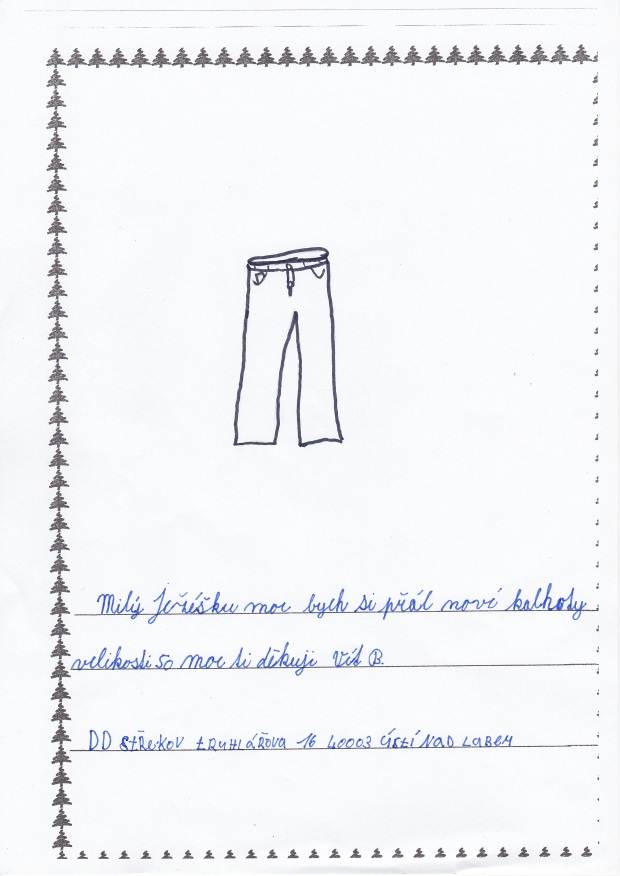 Milý Ježíšku moc bych si přál nové kalhoty
velikosti 50 moc ti děkuji Vít B.
DD STŘEKOV TRUHLÁŘOVA 16 40003 ÚSTÍ NAD LABEM